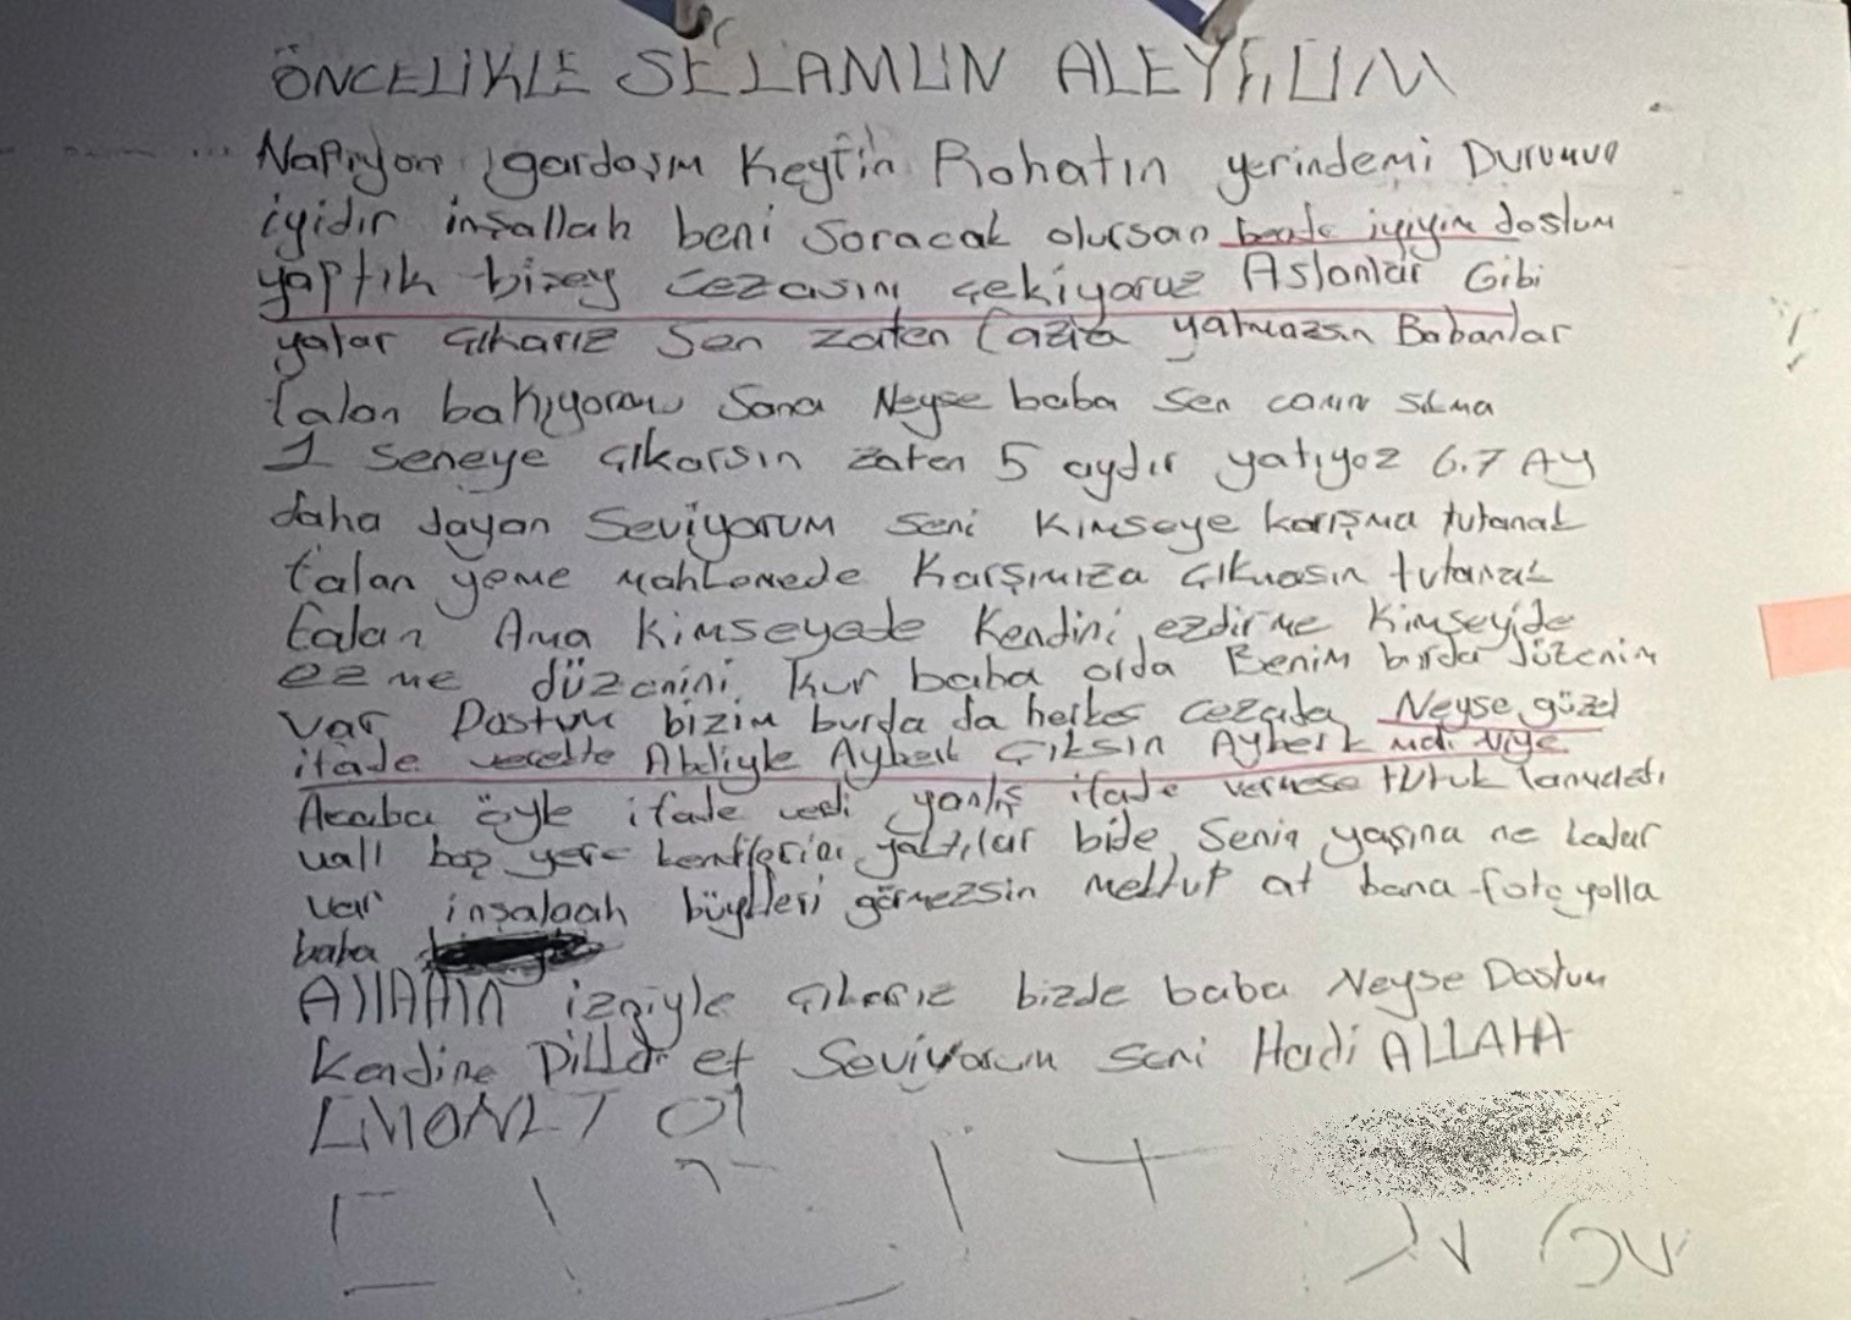 ÖNCELiKLE SELAMUN ALEYKUM
Napıyon gardaşım Keyfin Rohatın yerindemi Durumun
iyidir inşallah beni Soracak olursan bende iyiyim dostum
yaptık bizey cezasını çekiyoruz Aslanlar Gibi
yatar çıkarız Sen zaten fazla yatmazsın Babanlar
falan bakıyorau Sana Neyse baba Sen canın sıkma
1 seneye çıkarsın zaten 5 aydır yatıyoz 6.7 AY
daha dayan Seviyorum seni Kimseye karışma tutanak
falan yeme Mahkemede Karşımıza çıkmasın tutanak
falan Ama Kimseyede Kendini ezdirme Kimseyide
ezme düzenini Kur baba orda Benim burda düzenim
var Dostum bizim burda da herkes cezada Neyse güzel
ifade verekte Abdiyle Ayberk Çıksın Ayberk niye
Acaba öyle ifade verdi yanlış ifade vermese tutuklanmazdı
vall boş yere yaktılar bide Senin yaşına ne kadar
var inşalaah büyükleri görmezsin mektup at bana foto yolla
baba
AllAHIN izniyle çıkarız bizde baba Neyse Dostum
Kendine Dikkat et Seviyorum seni Hadi ALLAHA
EMONET Ol